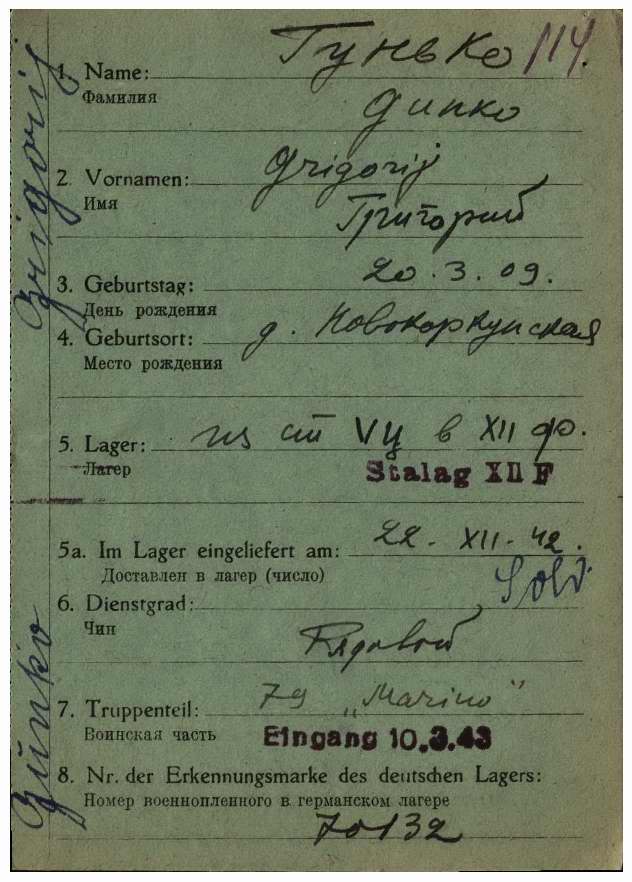 Гунько 114.
1. Name:
Фамилия
Gunko
Grigorij
2. Vornamen:
Имя
Григорий
3. Geburtstag: 20.3.09.
День рождения
4. Geburtsort: д. Новокоркунская
Место рождения
5. Lager: из ст V ц в XII ф.
Лагер
Stalag XII F
5a. Im Lager eingeliefert am: 22-XII-42.
Доставлен в лагер (число)
Sold.
6. Dienstgrad:
Чин
Рядовой
7. Truppenteil: 79 „Marino"
Воинская часть
Eingang 10.3.43
8. Nr. der Erkennungsmarke des deutschen Lagers:
Номер военнопленного в германском лагере
70132
Grigorij
Gunko